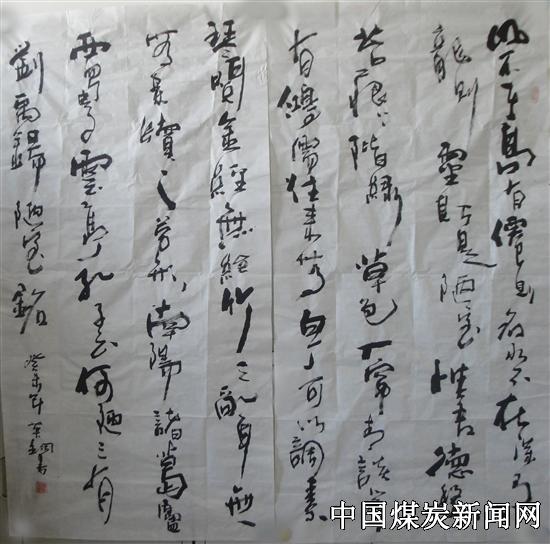 山不在高有僊則名水不在深有
龍則靈斯是陋室惟吾德馨
苔痕上階綠草色入簾青談笑
有鴻儒往來無白丁可以調素
琴閱金經無絲竹之亂耳無
案牘之勞形南陽諸葛廬
西蜀子雲亭孔子云何陋之有
劉禹錫陋室銘
癸未年
中国煤炭新闻网